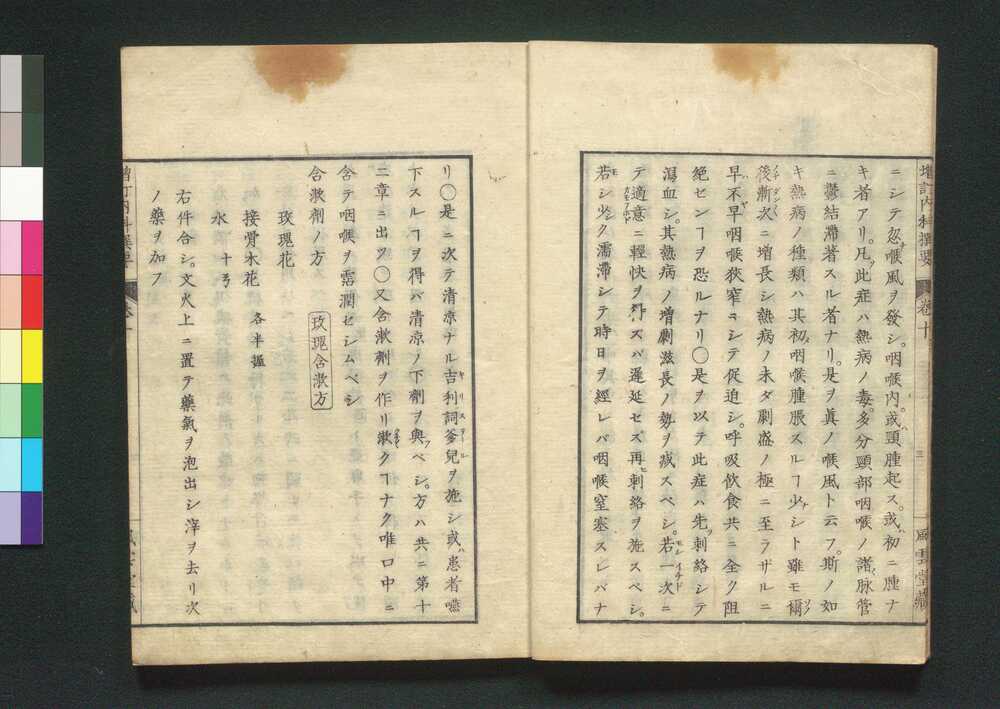 增訂内科撰要 卷十 三 風雲堂藏
ニシテ忽喉風ヲ發シ。咽喉内。或頸腫起ス。或初ニ腫ナ
キ者アリ。凡此症ハ熱病ノ毒。多分頸部咽喉ノ諸脉管
ニ鬱結滯著スル者ナリ。是ヲ眞ノ喉風ト云フ。斯ノ如
キ熱病ノ種類ハ其初咽喉腫脹スルヿ少シト雖モ爾
後漸次ニ增長シ熱病ノ未ダ劇盛ノ極ニ至ラザルニ
早不早咽喉狹窄ヲシテ促迫シ。呼吸飲食共ニ全ク阻
絶センヿヲ恐ルナリ〇是ヲ以テ此症ハ先刺絡シテ
瀉血シ。其熱病ノ增劇滋長ノ勢ヲ減スベシ。若一次ニ
テ適意ニ輕快ヲ得ズバ遲延セズ再刺絡ヲ施スベシ。
若シ少ク濡滯シテ時日ヲ經レバ咽喉窒塞スレバナ
リ〇是ニ次テ清凉ナル吉利詞爹兒ヲ施シ或患者嚥
下スルヿヲ得バ清凉ノ下劑ヲ與ベシ。方ハ共ニ第十
三章ニ出ツ〇又含漱劑ヲ作リ漱クヿナク唯口中ニ
含テ咽喉ヲ霑潤セシムベシ
含漱劑ノ方 玫瑰含漱方
玫瑰花
接骨木花 各半握
水 十弓
右件合シ。文火上ニ置テ藥氣ヲ泡出シ滓ヲ去リ次
ノ藥ヲ加フ
增訂内科撰要